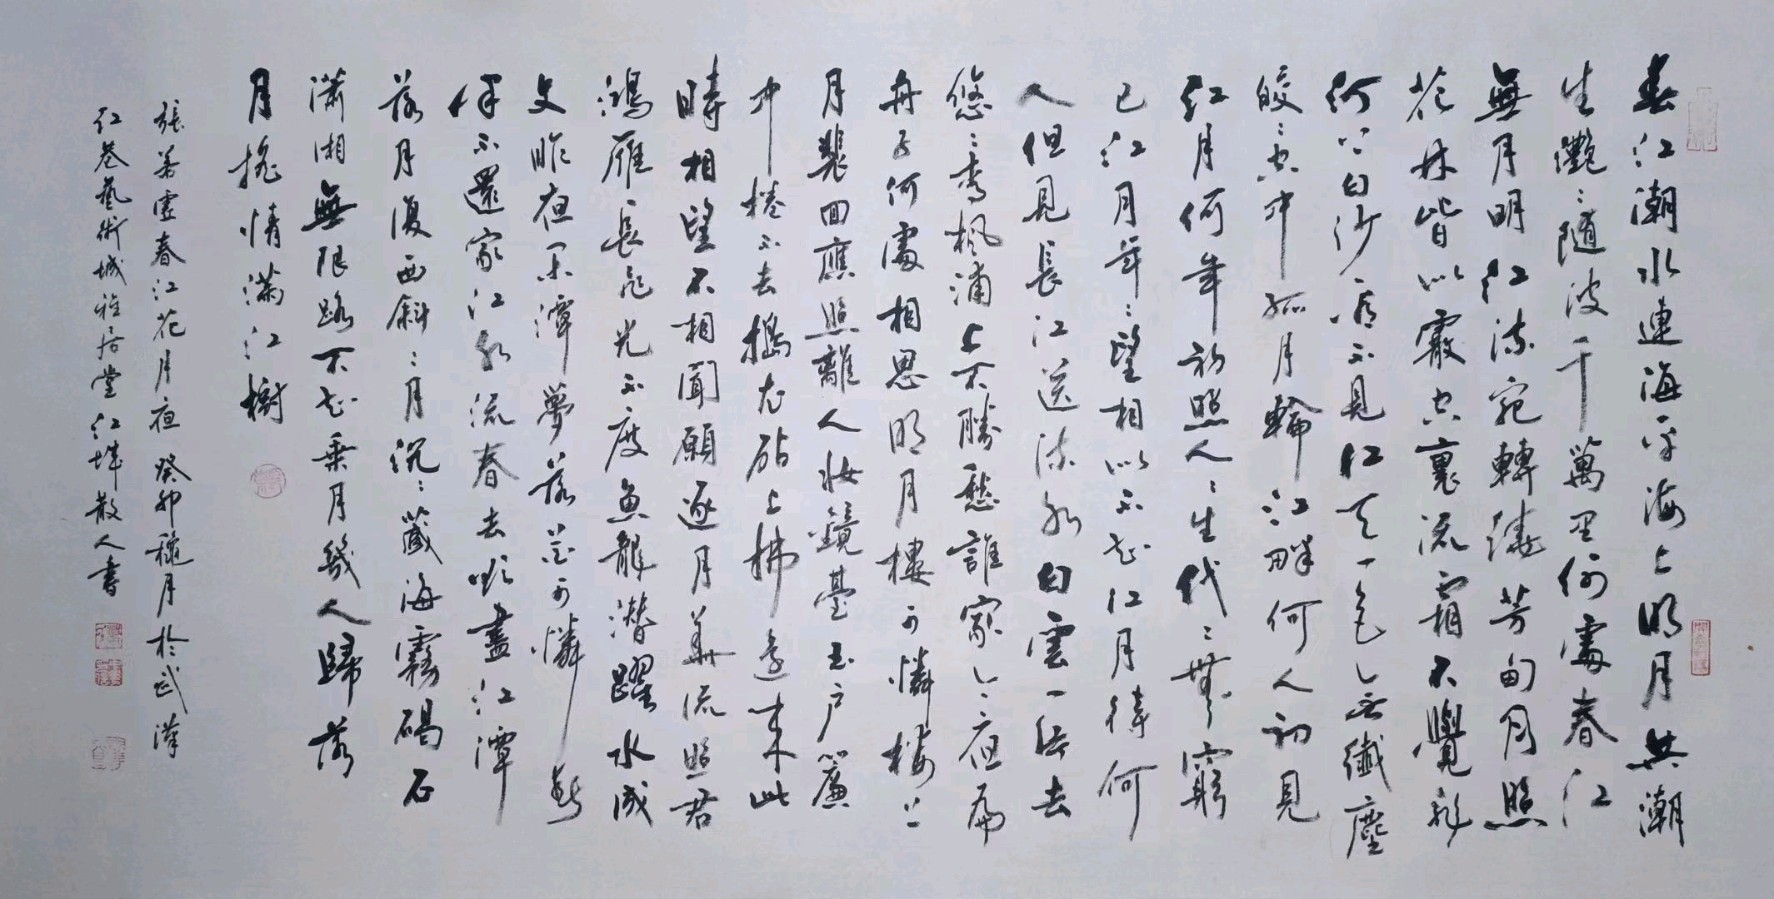 春江潮水連海平海上明月共潮
生灩〻隨波千萬里何處春江
無月明江流宛轉繞芳甸月照
花林皆似霰空裏流霜不覺飛
汀上白沙看不見江天一色無纖塵
皎〻空中孤月輪江畔何人初見
江月何年初照人〻生代〻無窮
已江月年〻望相似不知江月待何
人但見長江送流水白雲一片去
悠〻青楓浦上不勝愁誰家今夜扁
舟子何處相思明月樓可憐樓上
月裴回應照離人妝鏡臺玉戶簾
中捲不去搗衣砧上拂還來此
時相望不相聞願逐月華流照君
鴻雁長飛光不度魚龍潛躍水成
文昨夜閑潭夢落花可憐春
半不還家江水流春去欲盡江潭
落月復西斜〻月沉〻藏海霧碣石
瀟湘無限路不知乘月幾人歸落
月搖情滿江樹
張若虛春江花月夜癸卯穐月於武漢
紅巷藝術城雅居堂江城散人書